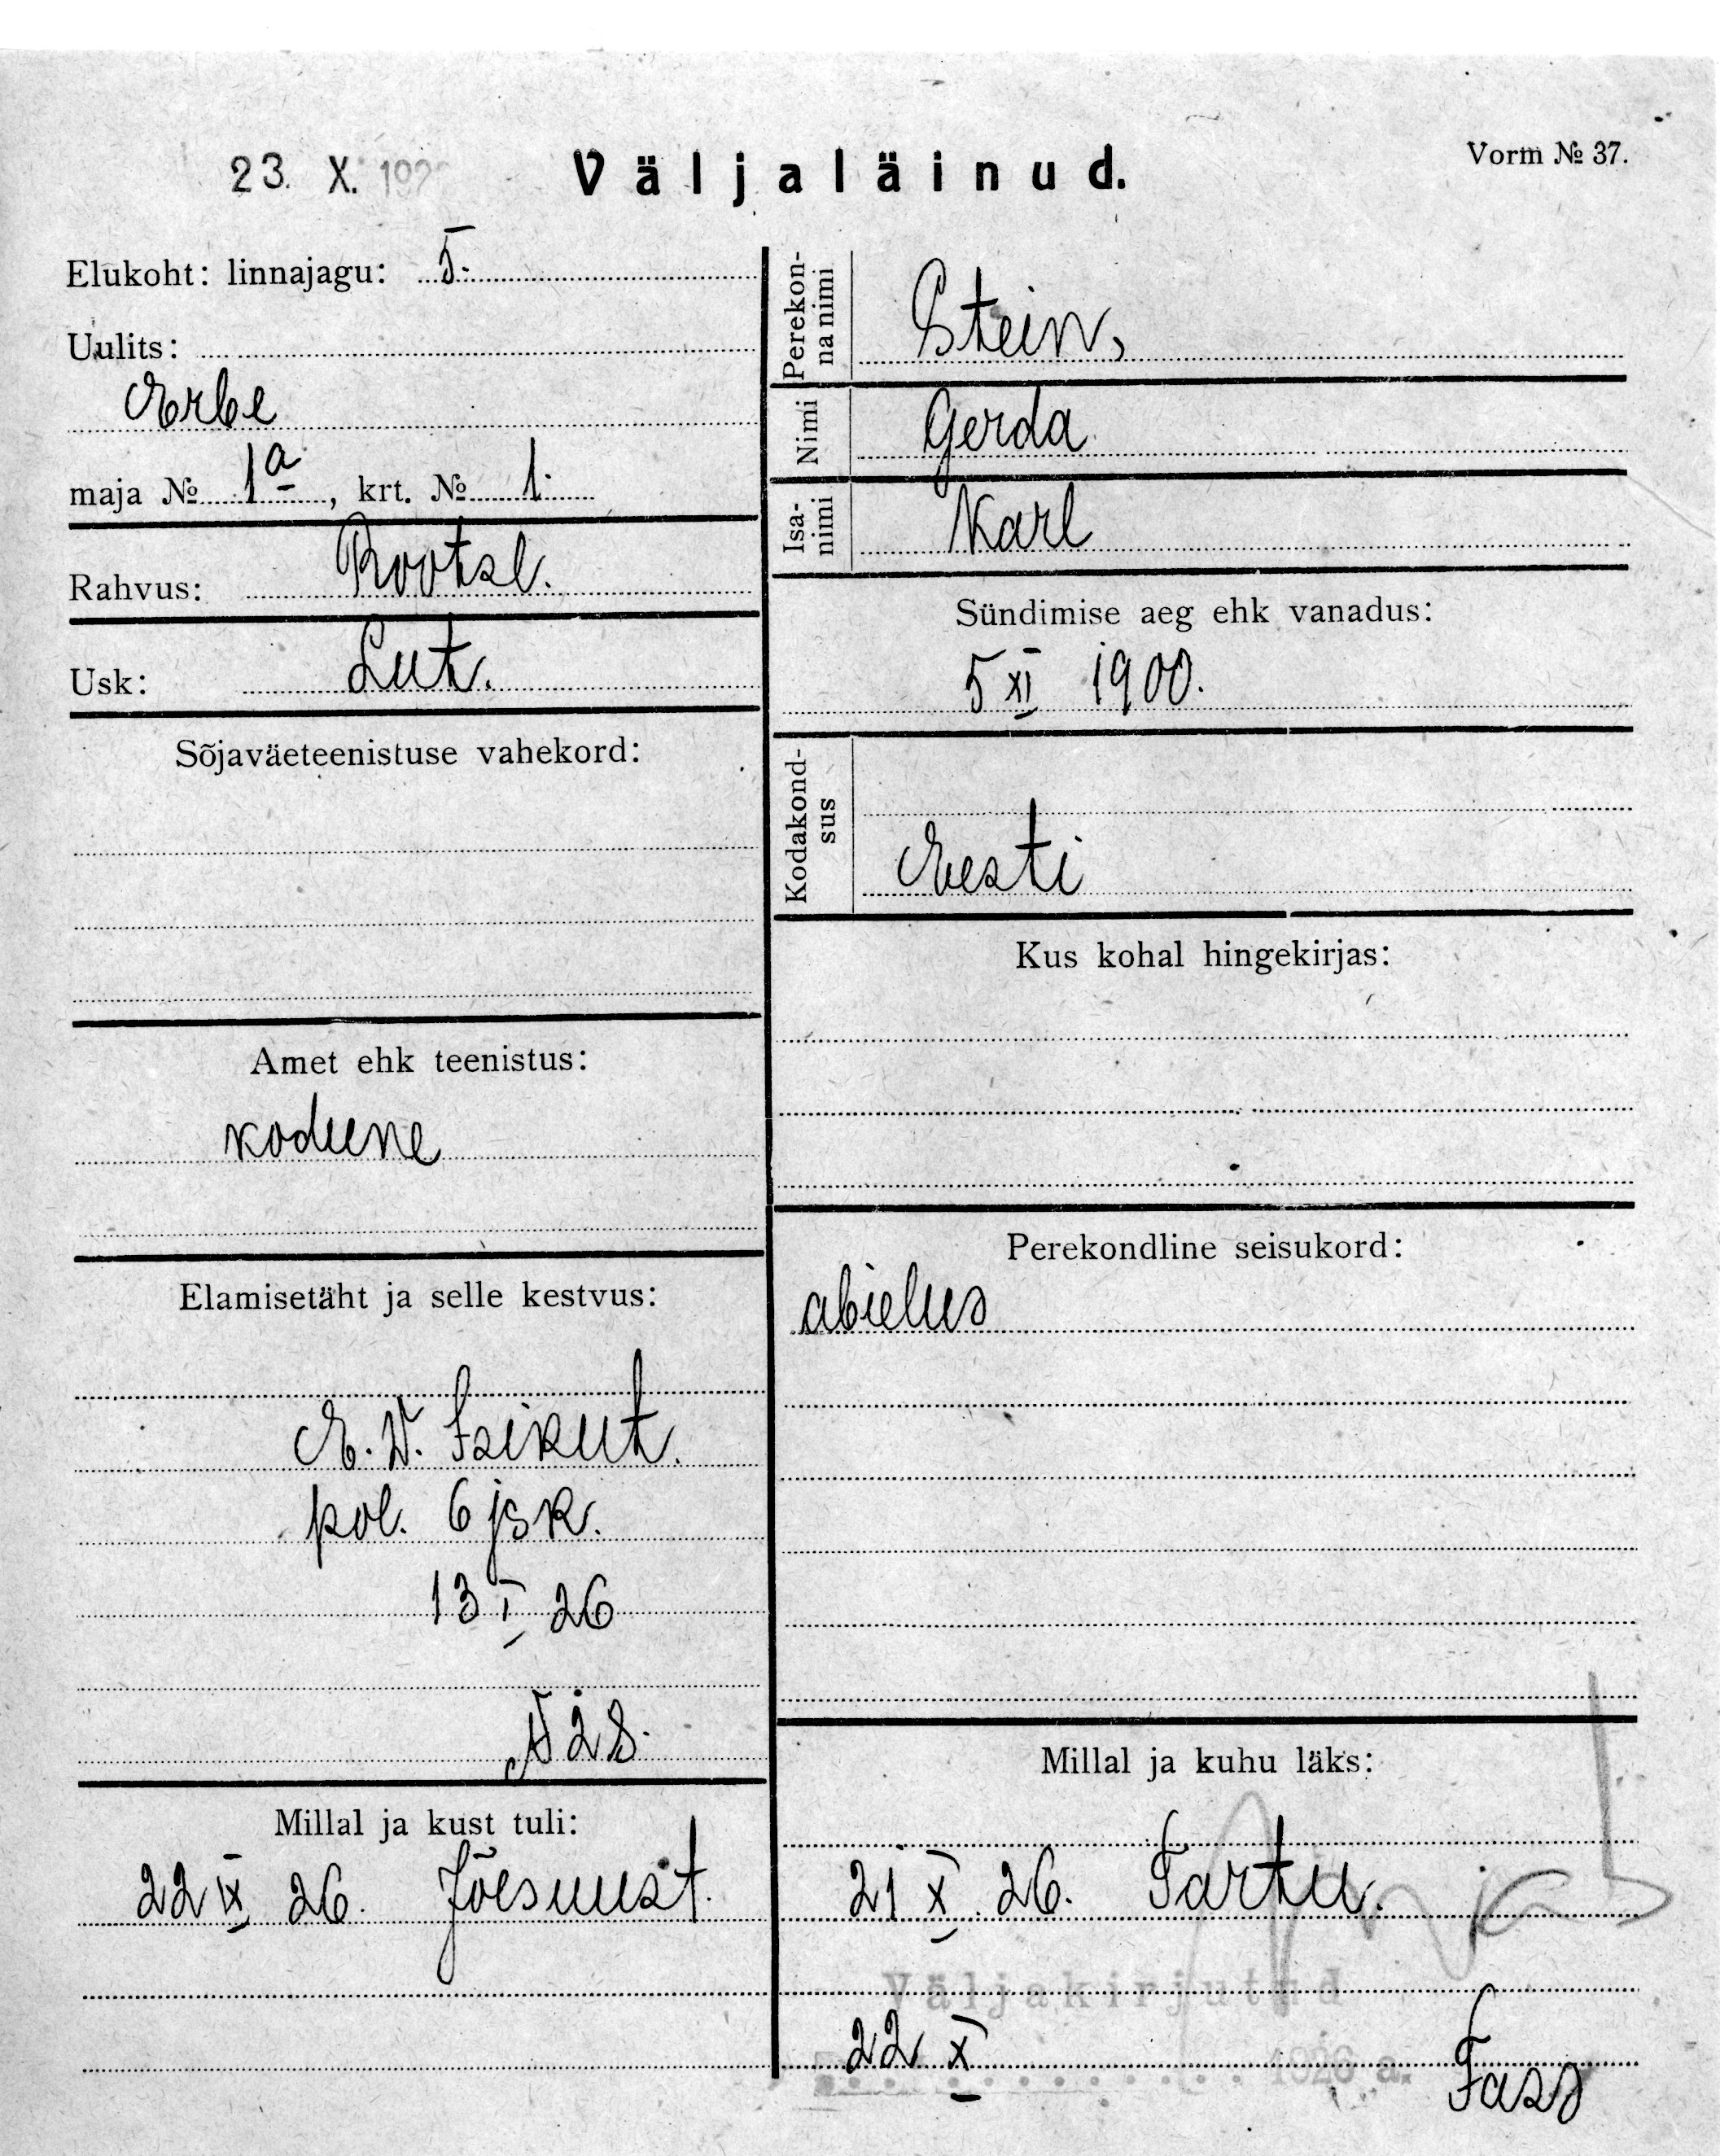 23. X. 192
Väljaläinud.
Vorm № 37.
Elukoht: linnajagu: 5.
Uulits:
Erbe
maja № 1a, krt. № 1.
Rahvus: Rootsl.
Usk: Lut.
Sõjaväeteenistuse vahekord:
Amet ehk teenistus:
kodune
Elamisetäht ja selle kestvus:
E.V. Isikut.
pol. 6 jsk.
13 I 26
№ 28.
Millal ja kust tuli:
22 IX 26. Jõesuust.
Perekon-
na nimi
Stein,
Nimi
Gerda
Isa-
nimi
Karl
Sündimise aeg ehk vanadus:
5 XI 1900.
Kodakond-
sus
Eesti
Kus kohal hingekirjas:
Perekondline seisukord:
abielus
Millal ja kuhu läks:
21 X 26. Tartu.
Väljakirjutud
22 X 1926 a.